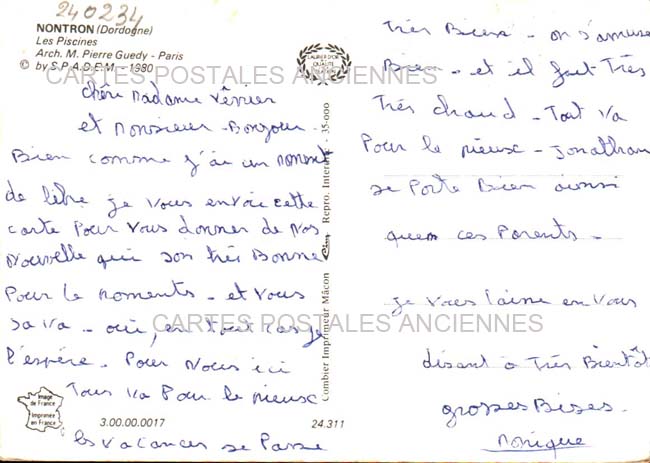 240234
NONTRON (Dordogne)
Les Piscines
Arch. M. Pierre Guedy - Paris
© by S.P.A.D.E.M. - 1980
LAURIER D'OR
DE LA
QUALITÉ
CARTES POSTALES ANCIENNES
chéri Madame Verrier
et Monsieur - Bonjour -
Bien comme j'ai un moment
de libre je vous envoi cette
carte Pour vous donner de Nos
Nouvelle qui son très Bonne
Pour le moments - et vous
sa va - oui, en tout cas je
l'espère - Pour Nous ici
Tous va Pour le mieux
les vacances se Passe
Très Bien - on s'amuse
Bien - et il fait Très
Très chaud - Tout va
Pour le mieux - Jonathan
se Porte Bien aussi
que ces Parents -
je vous laisse en vous
disant à Très Bientôt
grosses Bises -
Monique
CARTES POSTALES ANCIENNES
Combier Imprimeur Mâcon Cim Repro. Interdite - 35-000
Image
de France
Imprimée
en France
3.00.00.0017
24.311